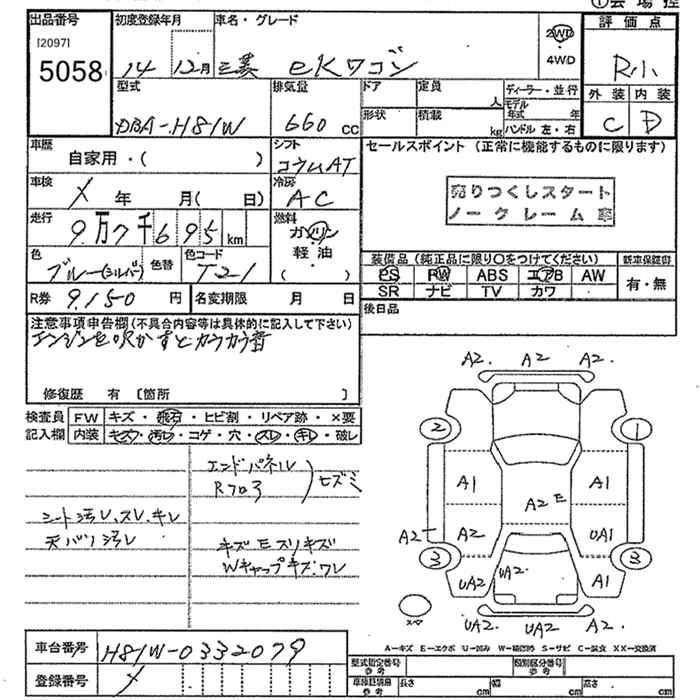 ①会場控
出品番号
[2097]
5058
初度登録年月
14 12月
車名・グレード
三菱 eKワゴン
2WD
・
4WD
評価点
R小
外装 内装
C D
型式
DBA-H81W
排気量
660 cc
ドア
定員
人
形状
積載
kg
ディーラー・並行
モデル年式 年
ハンドル 左・右
車歴
自家用・( )
シフト
コラムAT
車検
年 月( 日)
冷房
AC
走行
9万7千695km
燃料
ガソリン
軽油
( )
色
ブルー(シルバー)
色替
色コード
T21
R券 9,150 円
名変期限 月 日
セールスポイント (正常に機能するものに限ります)
売りつくしスタート
ノークレーム車
装備品 (純正品に限り○をつけてください)
新車保証書
PS PW ABS エアB AW
SR ナビ TV カワ
有・無
後日品
注意事項申告欄(不具合内容等は具体的に記入して下さい)
エンジンを吹かすとカラカラ音
修復歴 有 〔箇所 〕
検査員
記入欄
FW キズ・飛石・ヒビ割・リペア跡・×要
内装 キズ・汚レ・コゲ・穴・スレ・キレ・破レ
エンドパネル
Rフロア
ヒズミ
シート汚レ、スレ、キレ
天バリ汚レ
キズ エスリキズ
Wキャップキズ、ワレ
A2. A2 A2.
2 1
A1 A1
A2 E
A2 A2 UA1
3 3
UA2 UA2 A1
スペ
UA2 UA2 A2.
A=キズ E=エクボ U=凹み W=補修跡 S=サビ C=腐食 XX=交換済
車台番号 H81W-0332079
登録番号
型式指定番号
参考
類別区分番号
参考
車検証諸元
参考
長さ cm 幅 cm 高さ cm